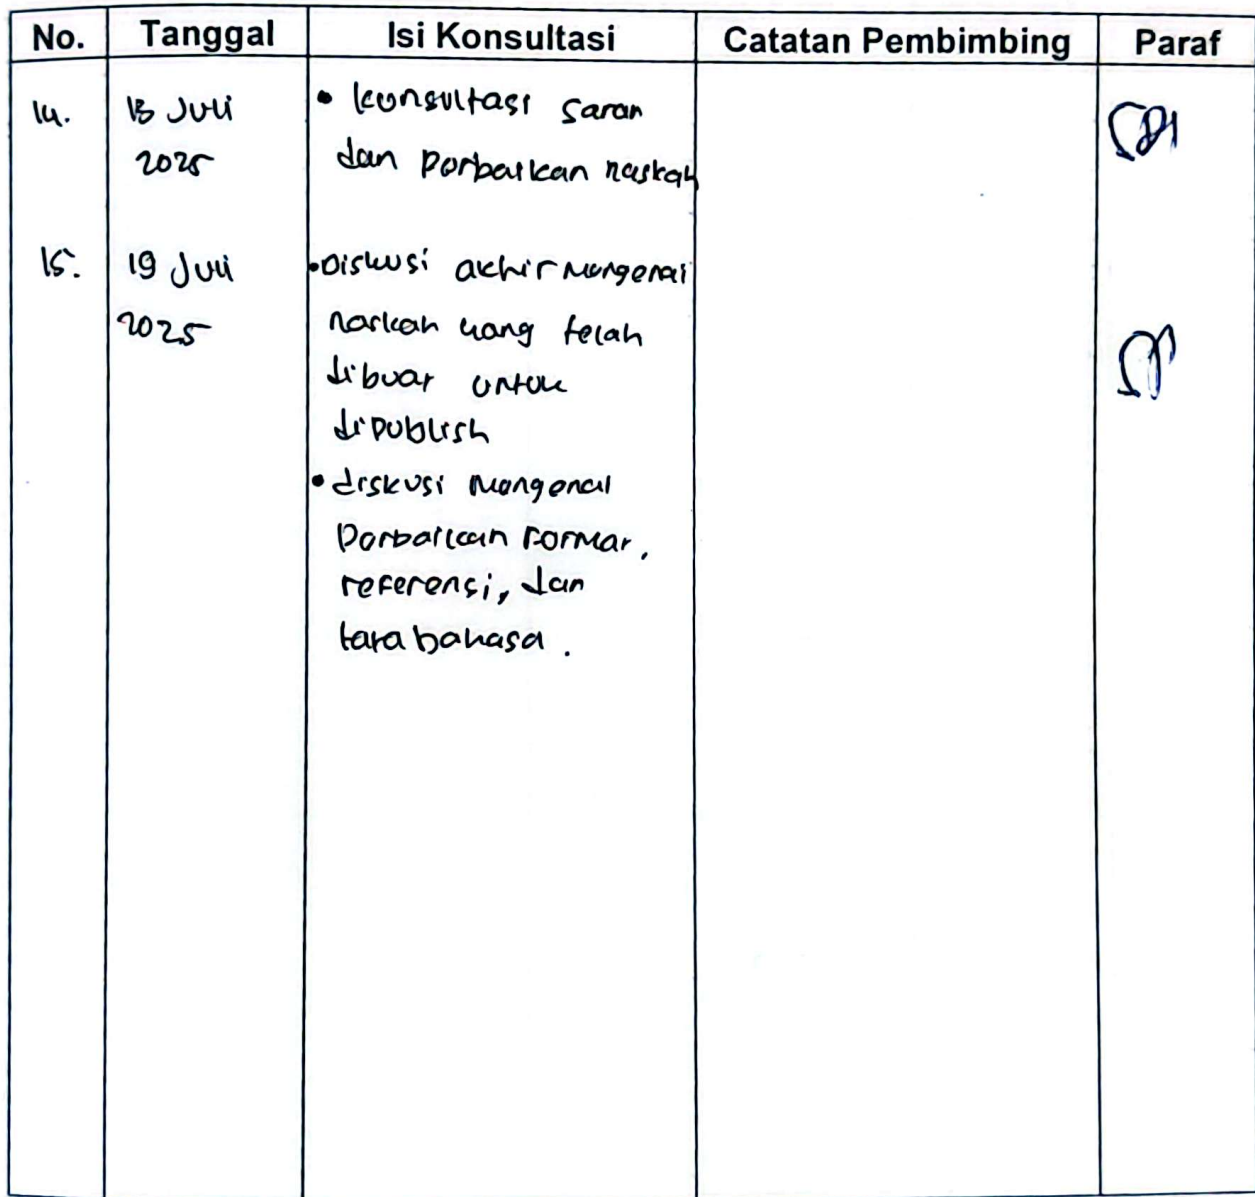 No. Tanggal Isi Konsultasi Catatan Pembimbing Paraf
14. 13 Juli • konsultasi saran
2025 dan perbaikan naskah
15. 19 Juli • Diskusi akhir mengenai
2025 naskah yang telah
dibuat untuk
dipublish
• diskusi mengenai
perbaikan format,
referensi, dan
tata bahasa.